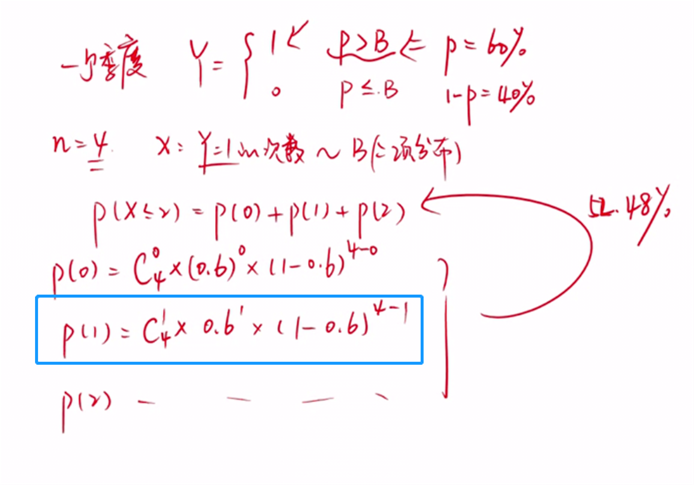 一个季度 Y = { 1 P > B ⇐ p = 60%
0 P ≤ B 1-p = 40%
n = 4 X: Y=1的次数 ~ B(二项分布)
P(X≤2) = P(0) + P(1) + P(2) 52.48%
P(0) = C₄⁰ × (0.6)⁰ × (1-0.6)⁴⁻⁰
P(1) = C₄¹ × 0.6¹ × (1-0.6)⁴⁻¹
P(2) — — — -